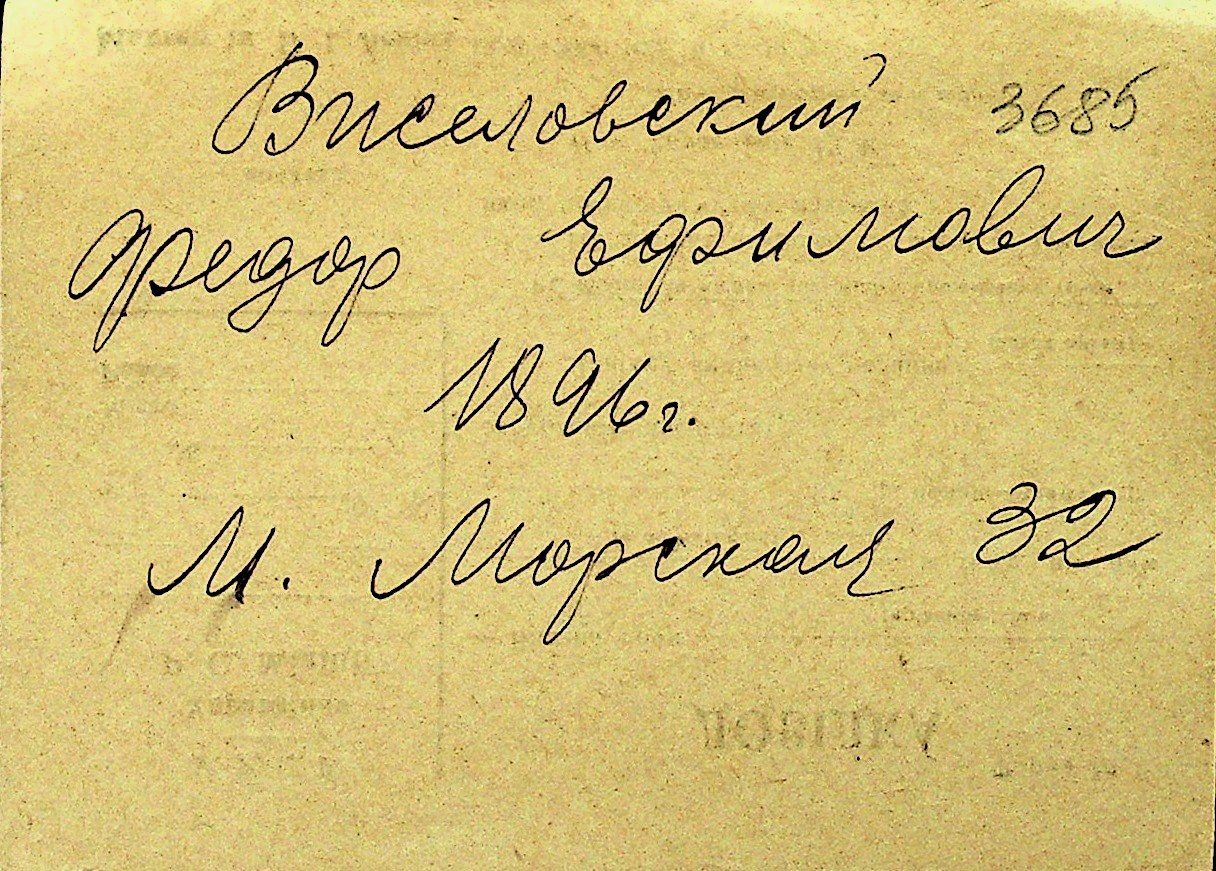 Виселовский 3685
Федор Ефимович
1896г.
М. Морская 32